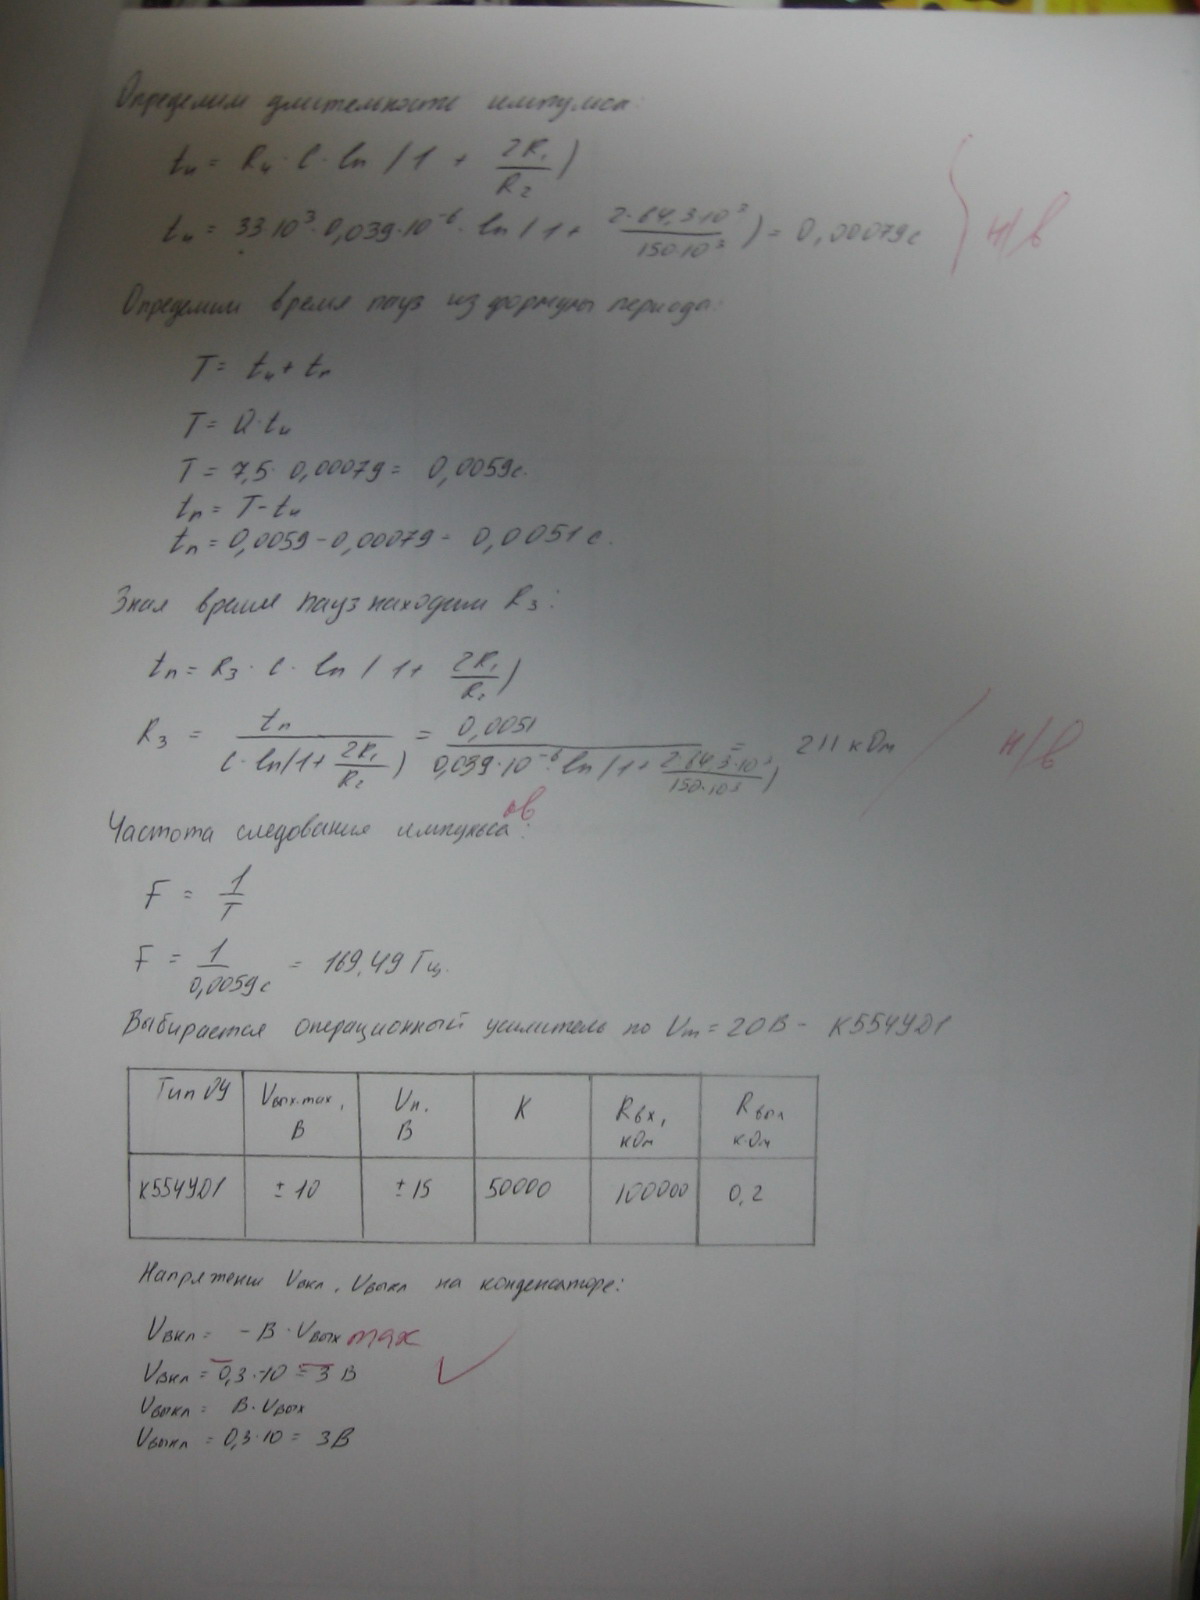 Определим длительность импульса:
tи = R4 · C · ln(1 + 2R1/R2)
tи = 33·10³·0,039·10⁻⁶ · ln(1 + 2·64,3·10³/150·10³) = 0,00079с
н/в
Определим время пауз из формулы периода:
T = tи + tп
T = Q·tи
T = 7,5 · 0,00079 = 0,0059с.
tп = T - tи
tп = 0,0059 - 0,00079 = 0,0051 с.
Зная время пауз находим R3:
tп = R3 · C · ln(1 + 2R1/R2)
R3 = tп/(C·ln(1 + 2R1/R2)) = 0,0051/(0,039·10⁻⁶·ln(1 + 2·64,3·10³/150·10³)) = 211 кОм
н/в
ов
Частота следования импульса:
F = 1/T
F = 1/0,0059с = 169,49 Гц.
Выбирается операционный усилитель по Um = 20В - К554УД1
Тип ОУ Uвых.max, В Uп. В K Rвх, кОм Rвых кОм
К554УД1 ±10 ±15 50000 100000 0,2
Напряжение Uвкл, Uвыкл на конденсаторе:
Uвкл = -B · Uвых max
Uвкл = -0,3·10 = -3 В
Uвыкл = B·Uвых
Uвыкл = 0,3·10 = 3В